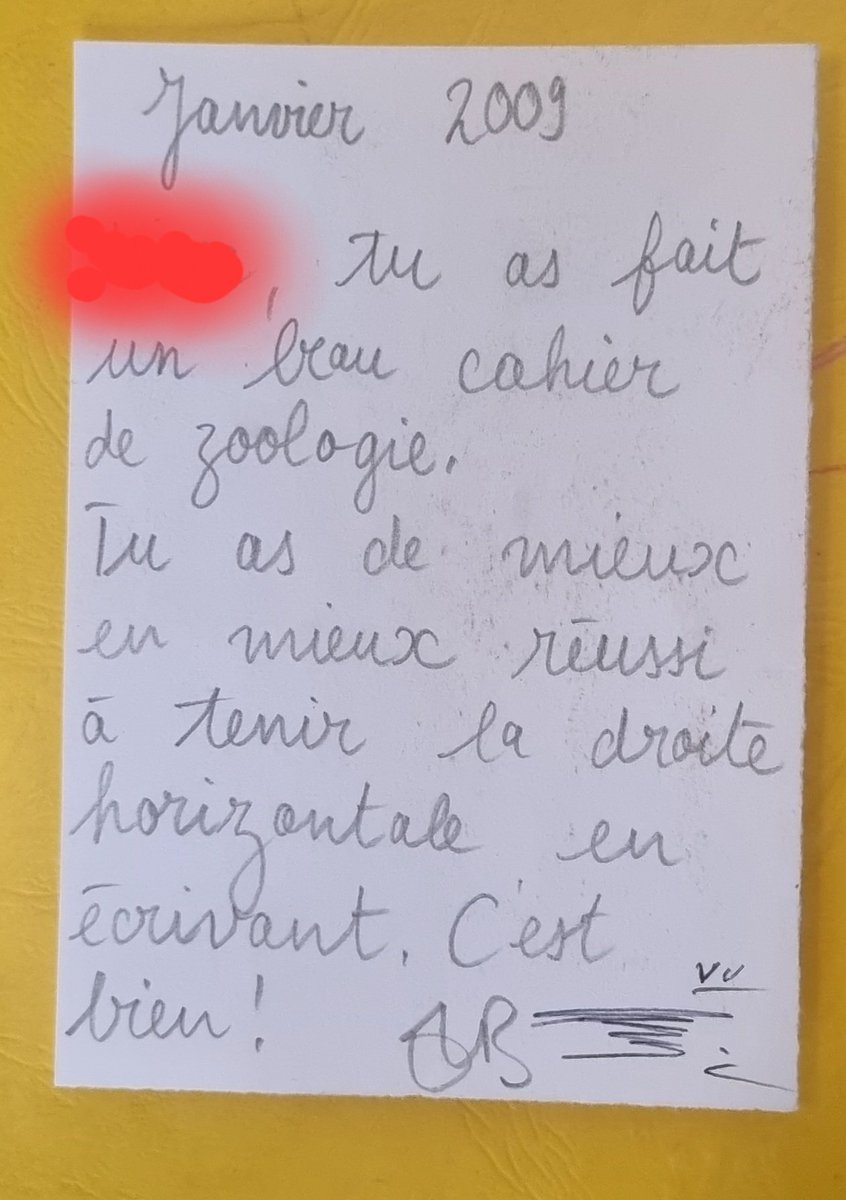 Janvier 2009
, tu as fait
un beau cahier
de zoologie.
Tu as de mieux
en mieux réussi
à tenir la droite
horizontale en
écrivant. C'est
bien!
vu